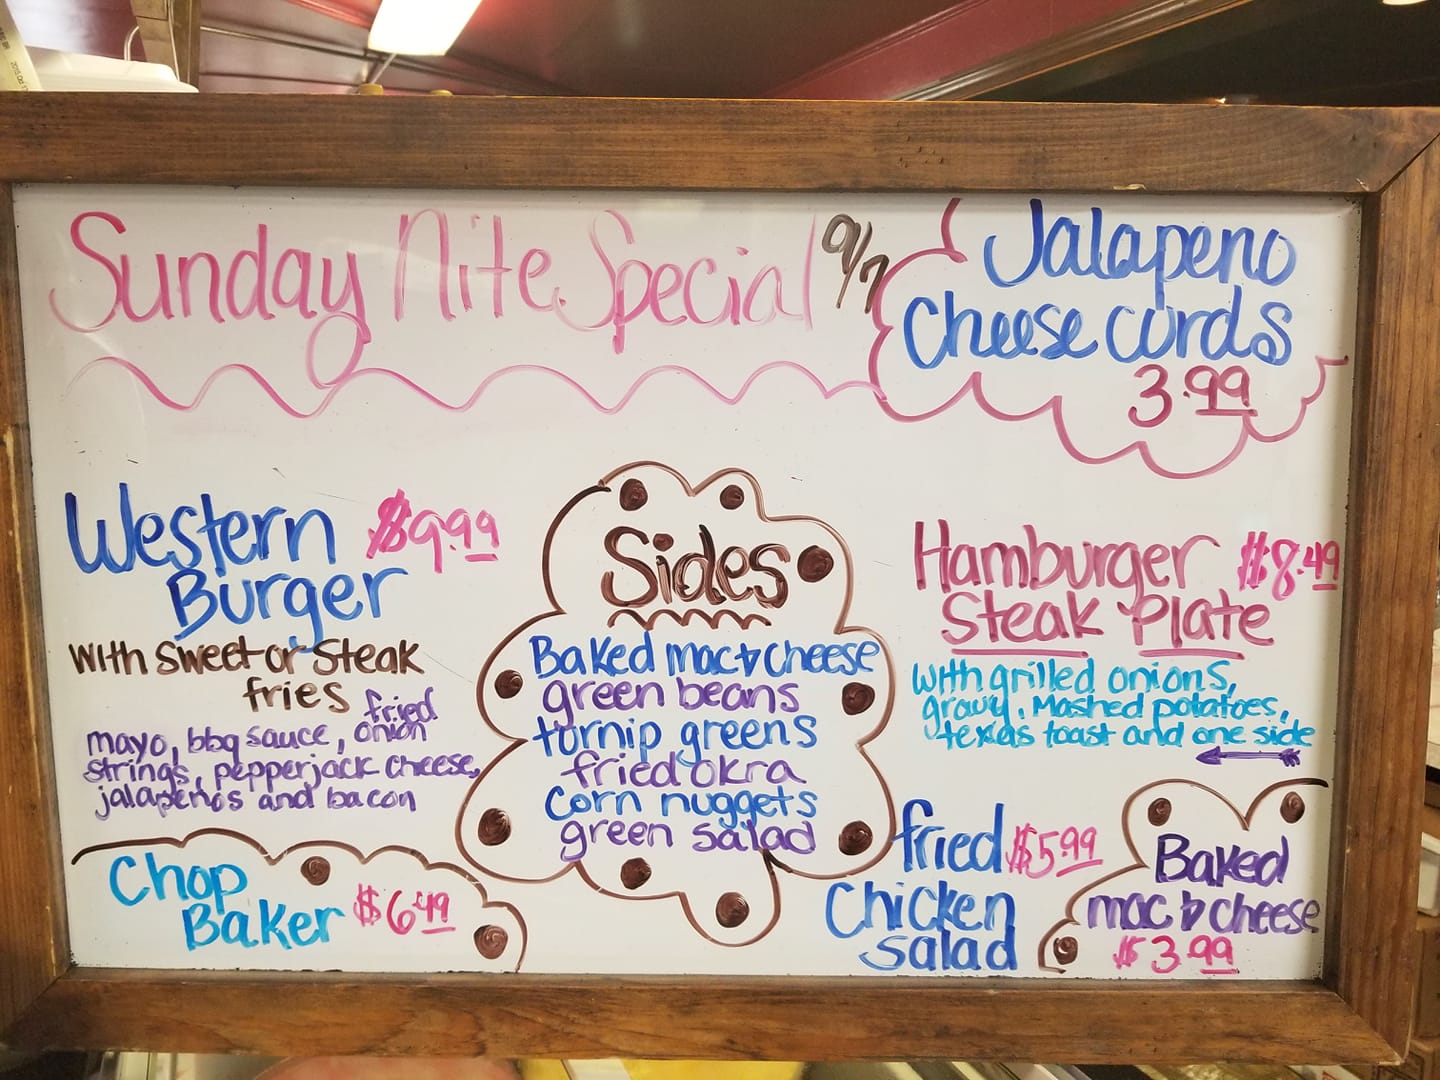 Sunday Nite Special 9/7
Jalapeno
Cheese curds
3.99
Western $9.99
Burger
with sweet or steak
fries
fried
mayo, bbq sauce, onion
strings, pepperjack cheese,
jalapeños and bacon
Chop
Baker $6.49
Sides
Baked mac & cheese
green beans
turnip greens
fried okra
corn nuggets
green salad
Hamburger $8.49
Steak Plate
with grilled onions,
gravy, mashed potatoes,
texas toast and one side
fried $5.99
Chicken
salad
Baked
mac & cheese
$3.99